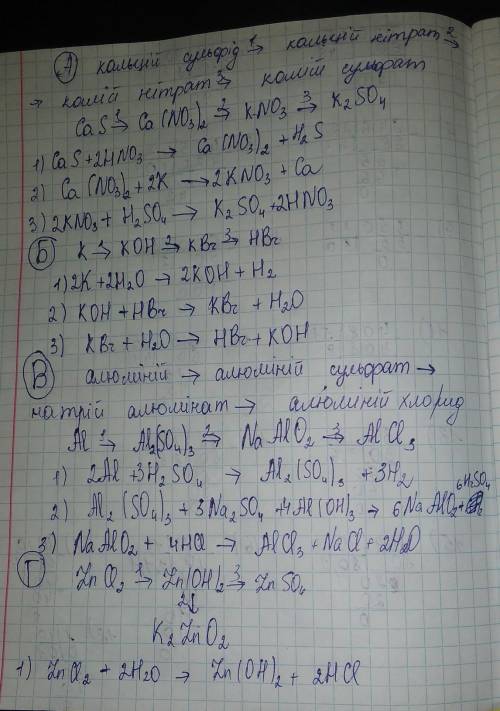 А кальцій сульфід 1→ кальцій нітрат 2→
→ калій нітрат 3→ калій сульфат
CaS 1→ Ca(NO3)2 2→ KNO3 3→ K2SO4
1) CaS + 2HNO3 → Ca(NO3)2 + H2S
2) Ca(NO3)2 + 2K → 2KNO3 + Ca
3) 2KNO3 + H2SO4 → K2SO4 + 2HNO3
Б K 1→ KOH 2→ KBr 3→ HBr
1) 2K + 2H2O → 2KOH + H2
2) KOH + HBr → KBr + H2O
3) KBr + H2O → HBr + KOH
В алюміній → алюміній сульфат →
натрій алюмінат → алюміній хлорид
Al 1→ Al2(SO4)3 2→ NaAlO2 3→ AlCl3
1) 2Al + 3H2SO4 → Al2(SO4)3 + 3H2
2) Al2(SO4)3 + 3Na2SO4 + 4Al(OH)3 → 6NaAlO2 + 6H2SO4
3) NaAlO2 + 4HCl → AlCl3 + NaCl + 2H2O
Г ZnCl2 1→ Zn(OH)2 3→ ZnSO4
2↓
K2ZnO2
1) ZnCl2 + 2H2O → Zn(OH)2 + 2HCl